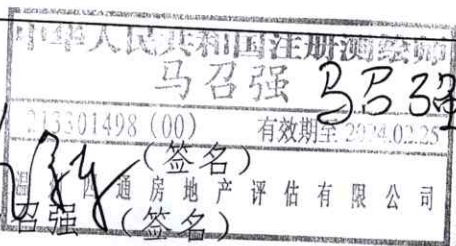 中华人民共和国注册测绘师
马召强 马召强
213301498（00） 有效期至 2024.02.25
（签名）
通房地产评估有限公司
召强 （签名）